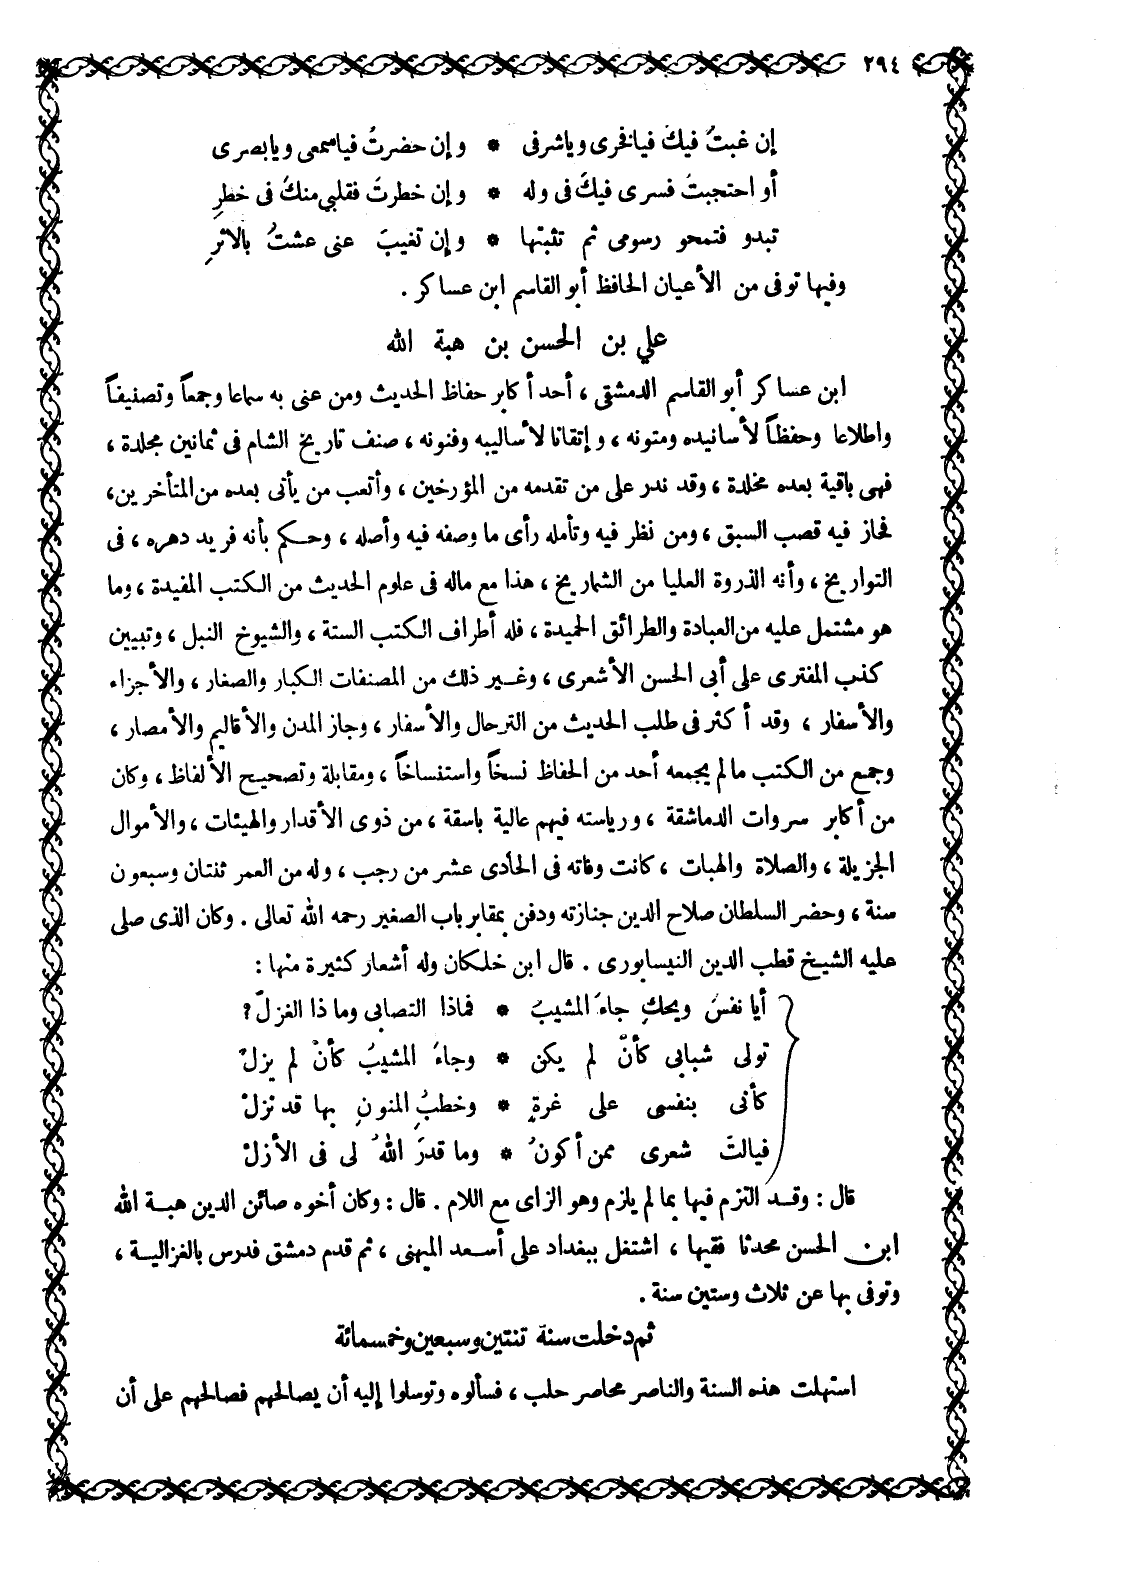 ٢٩٤
إن غبتُ فيكَ فيافخرى وياشرفى * وإن حضرتُ فياسمعى ويابصرى
أو احتجبتُ فسرى فيكَ فى وله * وإن خطرتَ فقلبي منكَ فى خطرِ
تبدو فتمحو رسومى ثم تثبتها * وإن تغيبَ عنى عشتُ بالاثرِ
وفيها توفى من الأعيان الحافظ أبو القاسم ابن عساكر .
علي بن الحسن بن هبة الله
ابن عساكر أبو القاسم الدمشقى ، أحد أكابر حفاظ الحديث ومن عنى به سماعا وجمعاً وتصنيفاً
واطلاعا وحفظاً لأسانيده ومتونه ، وإتقانا لأساليبه وفنونه ، صنف تاريخ الشام فى ثمانين مجلدة ،
فهى باقية بعده مخلدة ، وقد ندر على من تقدمه من المؤرخين ، وأتعب من يأتى بعده من المتأخرين،
فحاز فيه قصب السبق ، ومن نظر فيه وتأمله رأى ما وصفه فيه وأصله ، وحكم بأنه فريد دهره ، فى
التواريخ ، وأنه الذروة العليا من الشماريخ ، هذا مع ماله فى علوم الحديث من الكتب المفيدة ، وما
هو مشتمل عليه من العبادة والطرائق الحميدة ، فله أطراف الكتب الستة ، والشيوخ النبل ، وتبيين
كذب المفترى على أبى الحسن الأشعرى ، وغير ذلك من المصنفات الكبار والصغار ، والأجزاء
والأسفار ، وقد أكثر فى طلب الحديث من الترحال والأسفار ، وجاز المدن والأقاليم والأمصار ،
وجمع من الكتب مالم يجمعه أحد من الحفاظ نسخاً واستنساخاً ، ومقابلة وتصحيح الألفاظ ، وكان
من أكابر سروات الدماشقة ، ورياسته فيهم عالية باسقة ، من ذوى الأقدار والهيئات ، والأموال
الجزيلة ، والصلاة والهبات ، كانت وفاته فى الحادى عشر من رجب ، وله من العمر ثنتان وسبعون
سنة ، وحضر السلطان صلاح الدين جنازته ودفن بمقابر باب الصغير رحمه الله تعالى . وكان الذى صلى
عليه الشيخ قطب الدين النيسابورى . قال ابن خلكان وله أشعار كثيرة منها :
أيا نفسُ ويحكِ جاءَ المشيبُ * فماذا التصابى وما ذا الغزلّ؟
تولى شبابى كأنّ لم يكن * وجاءَ المشيبُ كأنْ لم يزلْ
كأنى بنفسى على غرةٍ * وخطبُ المنونِ بها قد نزلْ
فيالتَ شعرى ممن أكونُ * وما قدرَ اللهُ لى فى الأزلْ
قال : وقد التزم فيها بما لم يلزم وهو الزاى مع اللام . قال : وكان أخوه صائن الدين هبة الله
ابن الحسن محدثا فقيها ، اشتغل ببغداد على أسعد الميهنى ، ثم قدم دمشق فدرس بالغزالية ،
وتوفى بها عن ثلاث وستين سنة .
ثم دخلت سنة تنتين وسبعين وخمسمائة
استهلت هذه السنة والناصر محاصر حلب ، فسألوه وتوسلوا إليه أن يصالحهم فصالحهم على أن